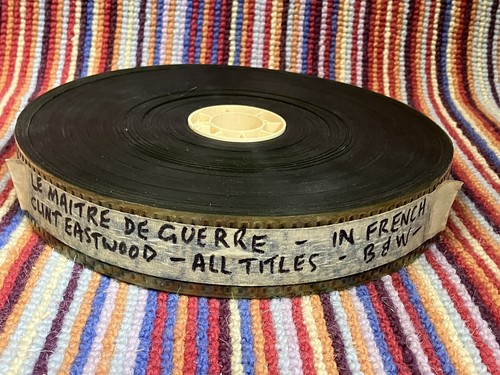 LE MAITRE DE GUERRE - IN FRENCH
CLINT EASTWOOD - ALL TITLES - B & W -